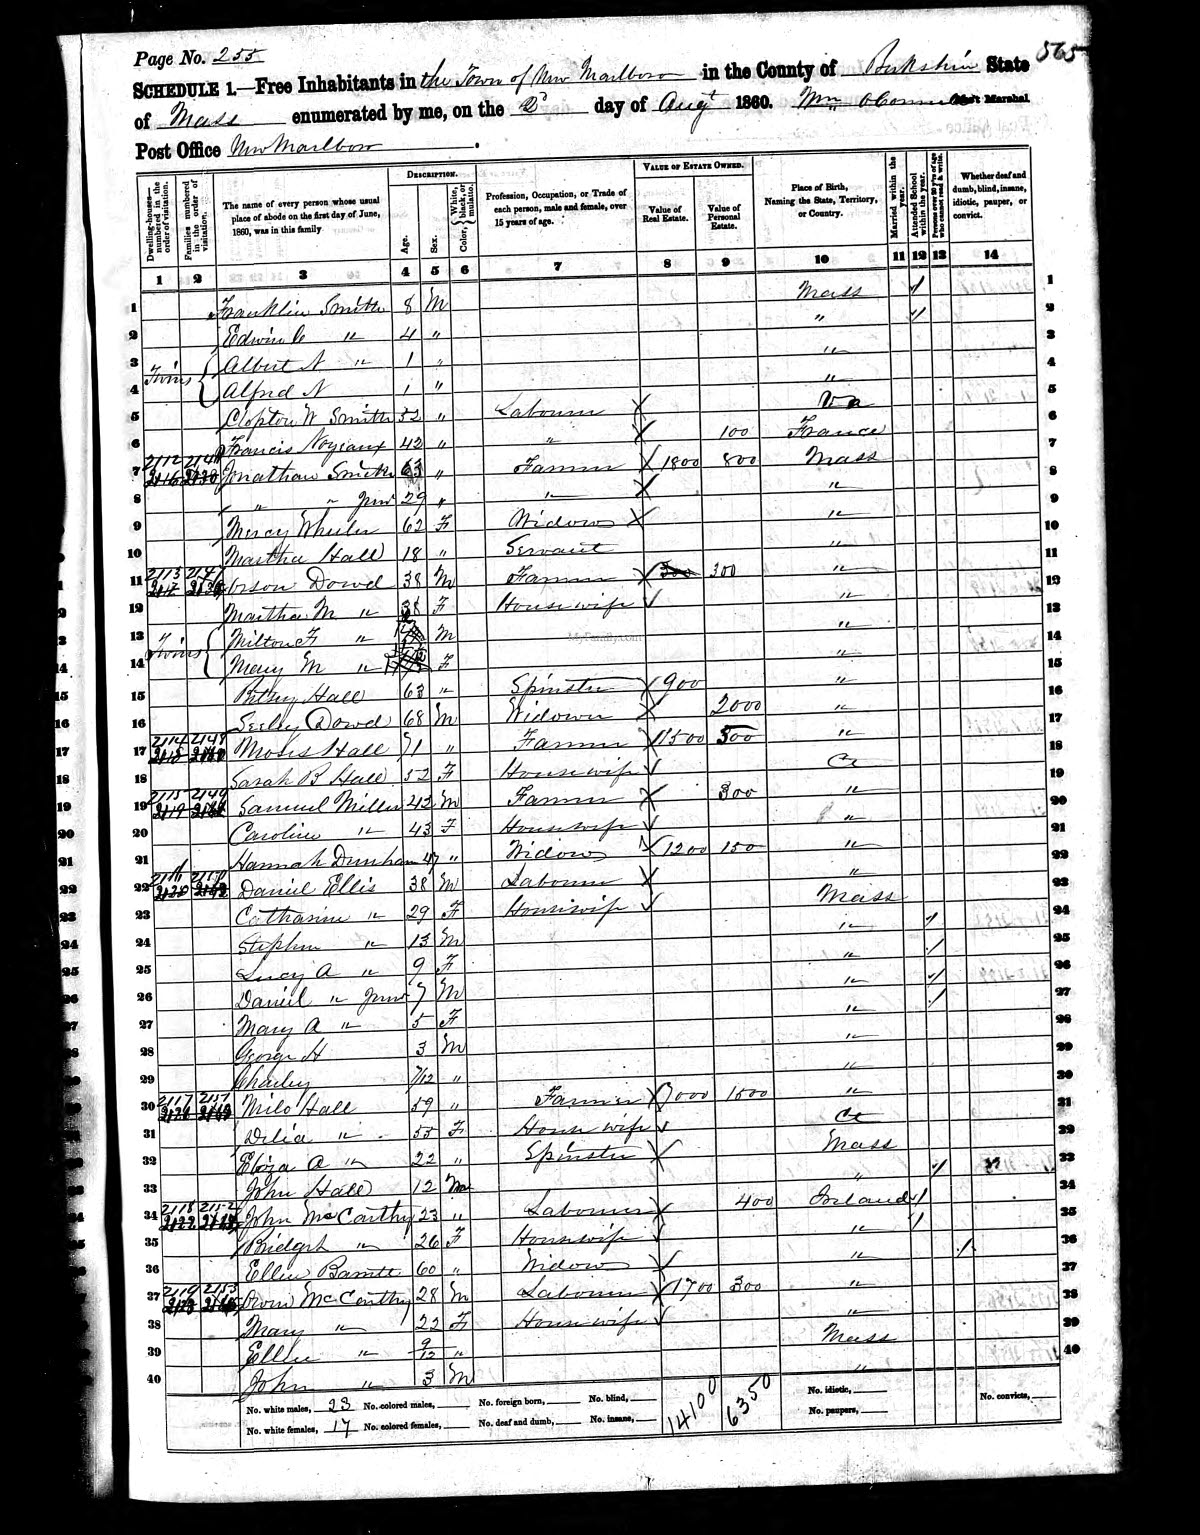 Page No. 255
565
SCHEDULE 1.—Free Inhabitants in the Town of New Marlboro in the County of Berkshire State
of Mass enumerated by me, on the 2d day of Augt 1860. Wm O'Connell Ass't Marshal
Post Office New Marlboro.
Dwelling-houses—numbered in the order of visitation.
Families numbered in the order of visitation.
The name of every person whose usual place of abode on the first day of June, 1860, was in this family
DESCRIPTION.
Age.
Sex.
Color, { White, black, or mulatto.
Profession, Occupation, or Trade of each person, male and female, over 15 years of age.
VALUE OF ESTATE OWNED.
Value of Real Estate.
Value of Personal Estate.
Place of Birth, Naming the State, Territory, or Country.
Married within the year.
Attended School within the year.
Persons over 20 y'rs of age who cannot read & write.
Whether deaf and dumb, blind, insane, idiotic, pauper, or convict.
1 2 3 4 5 6 7 8 9 10 11 12 13 14
1 Franklin Smith 8 M Mass /
2 Edwin C " 4 " " /
3 Twins { Albert N " 1 " "
4 Alfred N 1 " "
5 Clopton W Smith 52 " Labourer X Va
6 Francis 42 " " X 100 France
7 2112 2146 Jonathan Smith 63 " Farmer X 1800 800 Mass
8 " " Junr 29 " " X "
9 Mercy Wheeler 62 F Widow X "
10 Martha Hall 18 " Servant "
11 2113 2147 Orson Dowd 38 M Farmer X 300 "
12 Martha M " 38 F Housewife "
13 Twins { Milton F " M "
14 Mary M " F "
15 Betsey Hall 63 " Spinster X 900 "
16 Seeley Dowd 68 M Widower X 2000 "
17 2114 2148 Moses Hall 71 " Farmer X 1500 500 "
18 Sarah B Hall 52 F Housewife Ct
19 2115 2149 Samuel Miller 42 M Farmer X 300 "
20 Caroline " 43 F Housewife "
21 Hannah Dunham 47 " Widow X 1200 150 "
22 2116 2150 Daniel Ellis 38 M Labourer X "
23 Catharine " 29 F Housewife Mass
24 Stephen " 13 M " /
25 Lucy A " 9 F " /
26 Daniel " Junr 7 M " /
27 Mary A " 5 F " /
28 George H 3 M "
29 Charley 7/12 " "
30 2117 2151 Milo Hall 59 " Farmer X 7000 1500 "
31 Delia " 55 F House wife Ct
32 Eliza A " 22 " Spinster Mass
33 John Hall 12 M " /
34 2118 2152 John McCarthy 23 " Labourer 400 Ireland /
35 Bridget " 26 F Housewife " /
36 Ellen Barrett 60 " Widow " /
37 2119 2153 Owen McCarthy 28 M Labourer X 1700 300 "
38 Mary " 22 F House wife "
39 Ellen " 9/12 " Mass
40 John " 3 M "
No. white males, 23 No. colored males, No. foreign born, No. blind, 14100 6350 No. idiotic,
No. white females, 17 No. colored females, No. deaf and dumb, No. insane, No. paupers, No. convicts,
MyFamily.com